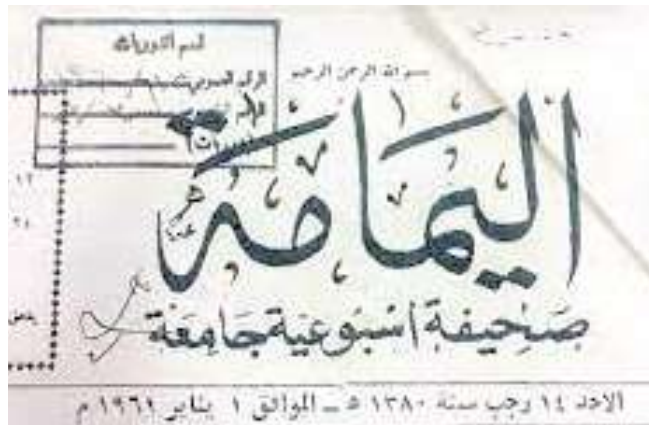 قسم الدوريات
بسم الله الرحمن الرحيم
اليمامة
صحيفة أسبوعية جامعة
الاحد ١٤ رجب سنة ١٣٨٠ ه ــ الموافق ١ يناير ١٩٦١ م